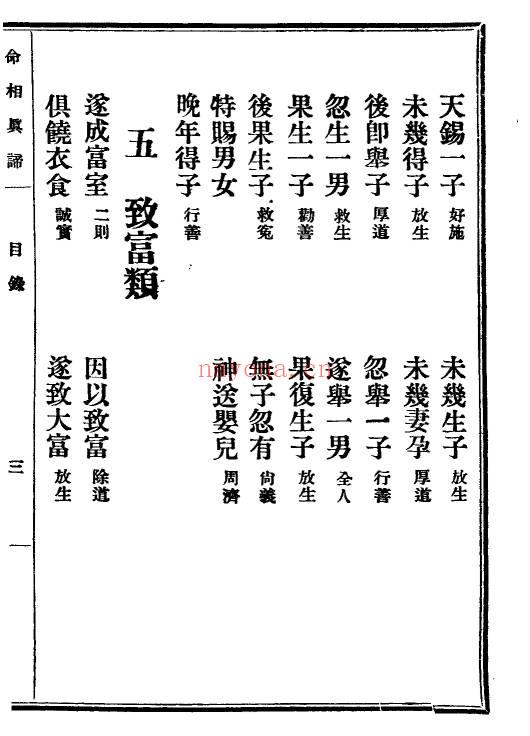 天錫一子 好施
未幾生子 放生
未幾得子 放生
未幾妻孕 厚道
後卽舉子 厚道
忽舉一子 行善
忽生一男 救生
遂舉一男 全人
果生一子 勸善
果復生子 放生
後果生子 救寃
無子忽有 尙義
特賜男女
神送嬰兒 周濟
晚年得子 行善
五 致富類
遂成富室 二則
因以致富 除道
俱饒衣食 誠實
遂致大富 放生
命相眞諦 目錄 三